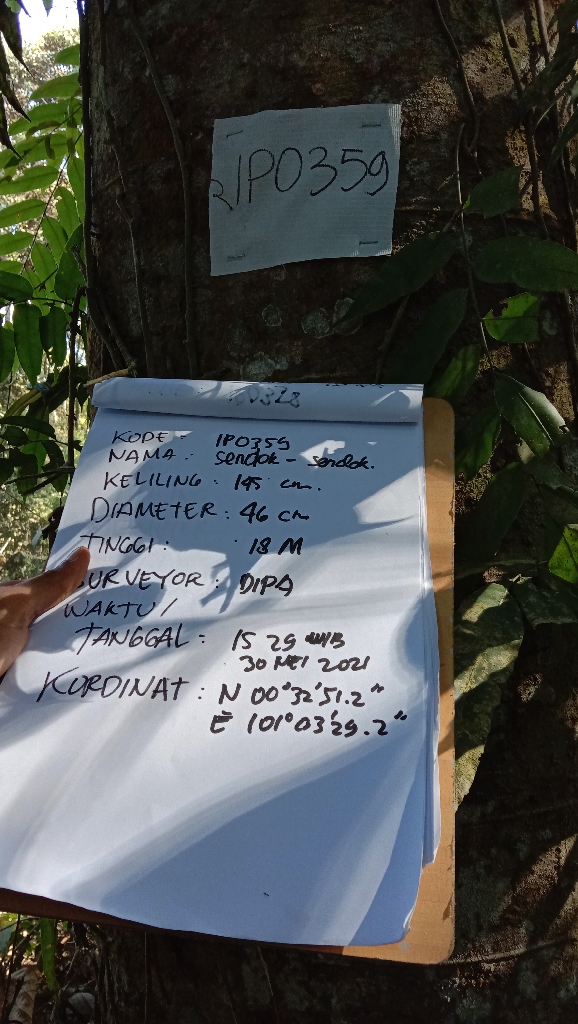 21P0359
KODE : 1P0359
NAMA : Sendok - Sendok.
KELILING : 145 cm.
DIAMETER : 46 cm
TINGGI : 18 M
SURVEYOR : DIPA
WAKTU /
TANGGAL : 15 29 WIB
30 MEI 2021
KORDINAT : N 00°32'51.2"
E 101°03'29.2"